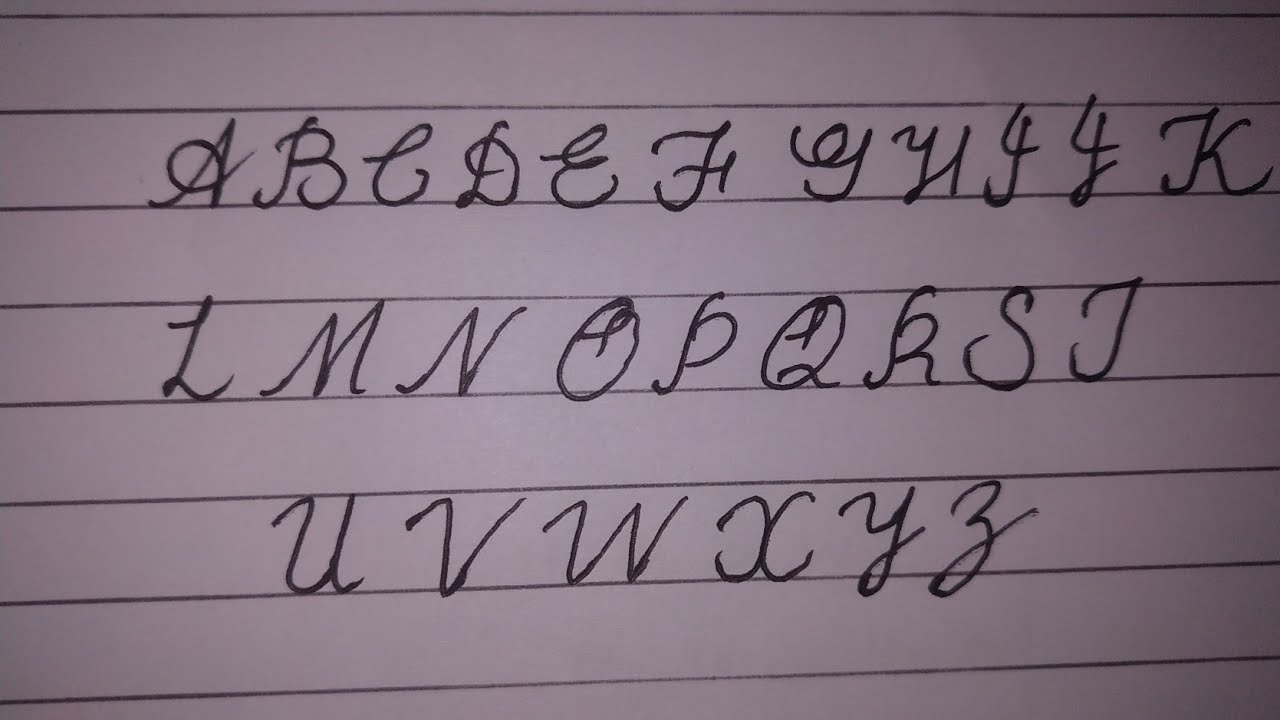 A B C D E F G H I J K
L M N O P Q R S T
U V W X Y Z